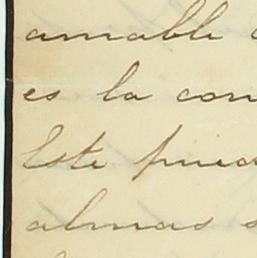 amable
es la con
Este pued
almas s